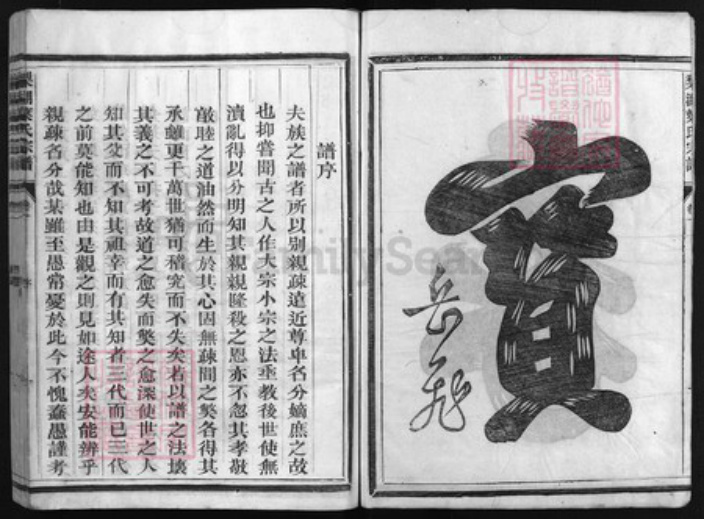 寶
岳飛
譜序
夫族之譜者所以別親疎遠近尊卑名分嫡庶之故
也抑嘗聞古之人作大宗小宗之法垂教後世使無
瀆亂得以分明知其親親隆殺之恩亦不忽其孝敬
敵睦之道油然而生於其心因無疎間之獘各得其
承雖更千萬世猶可稽究而不失矣若以譜之法壞
其義之不可考故道之愈失而獘之愈深使世之人
知其父而不知其祖幸而有其知者三代而已三代
之前莫能知也由是觀之則見如途人矣安能辨乎
親疎名分哉某雖至愚常憂於此今不愧蠢愚謹考
FamilySearch